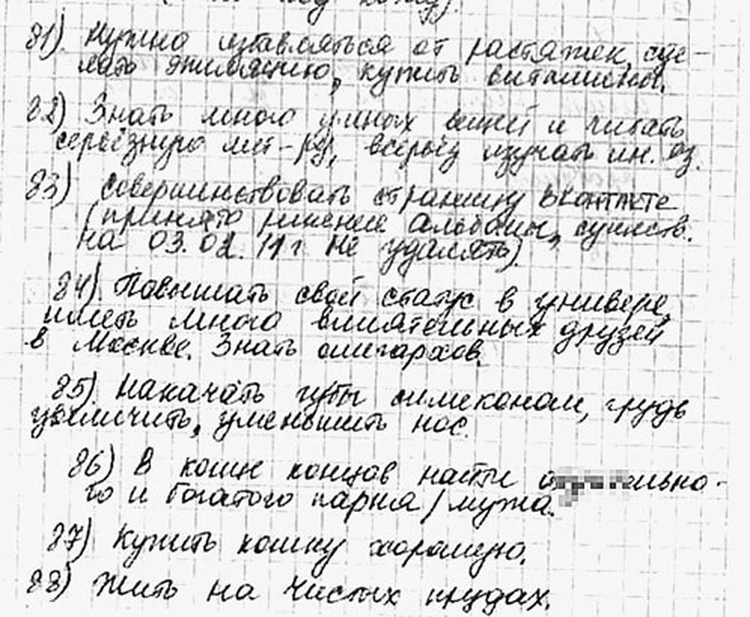 под кожу).
81) Нужно избавляться от растяжек, сде-
лать эпиляцию, купить витамины.
82) Знать много умных вещей и читать
серьёзную лит-ру, всерьёз изучать ин. яз.
83) Совершенствовать страницу вконтакте
(принято решение альбомы, существ.
на 03.02.11г не удалять).
84) Повышать свой статус в универе,
иметь много влиятельных друзей
в Москве. Знать олигархов.
85) Накачать губы силиконом, грудь
увеличить, уменьшить нос.
86) В конце концов найти ельно-
го и богатого парня/мужа.
87) Купить кошку хорошую.
88) Жить на чистых прудах.